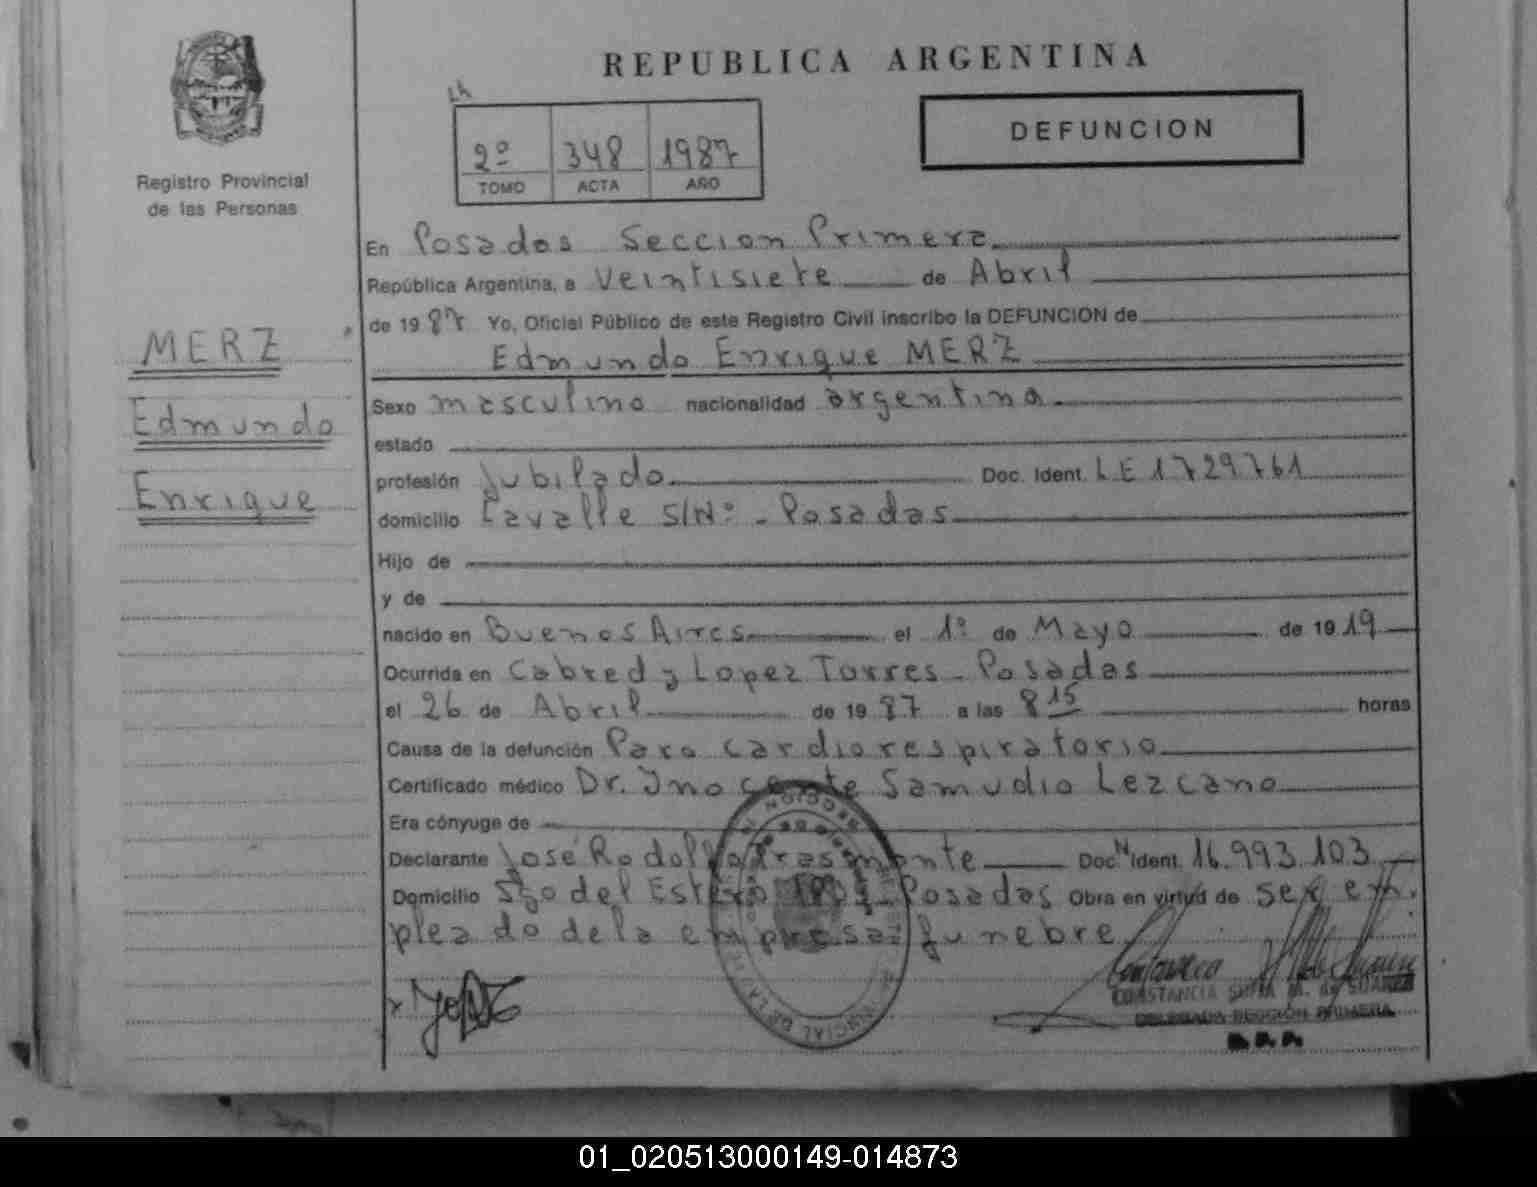 REPUBLICA ARGENTINA
DEFUNCION
2º 348 1987
TOMO ACTA AÑO
Registro Provincial
de las Personas
MERZ
Edmundo
Enrique
En Posadas Seccion Primera
República Argentina, a Veintisiete de Abril
de 1987 Yo, Oficial Público de este Registro Civil inscribo la DEFUNCION de
Edmundo Enrique MERZ
Sexo masculino nacionalidad argentina
estado
profesión Jubilado Doc. Ident. L E 1729.761
domicilio Lavalle S/Nº - Posadas
Hijo de
y de
nacido en Buenos Aires el 1º de Mayo de 1919
Ocurrida en Cabred y Lopez Torres - Posadas
el 26 de Abril de 1987 a las 8 15 horas
Causa de la defunción Paro cardiorespiratorio
Certificado médico Dr. Inocente Samudio Lezcano
Era cónyuge de
Declarante José Rodolfo Trasmonte Doc N Ident. 16.993.103
Domicilio Sgo del Estero Posadas Obra en virtud de ser em-
pleado de la empresa funebre
CONSTANCIA SUNA M. de SUAREZ
DELEGADA SECCIÓN PRIMERA
R. P. P.
01_020513000149-014873